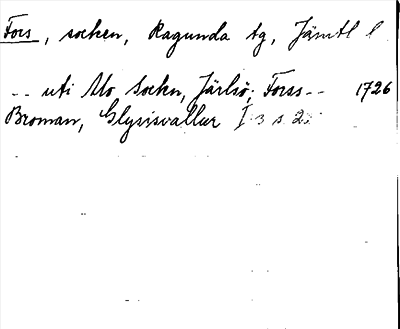 Fors, socken, Ragunda tg, Jämtl l
-- uti Mo Sockn, Järlsö, Forss-- 1726
Broman, Glysisvallur I:3 s. 2